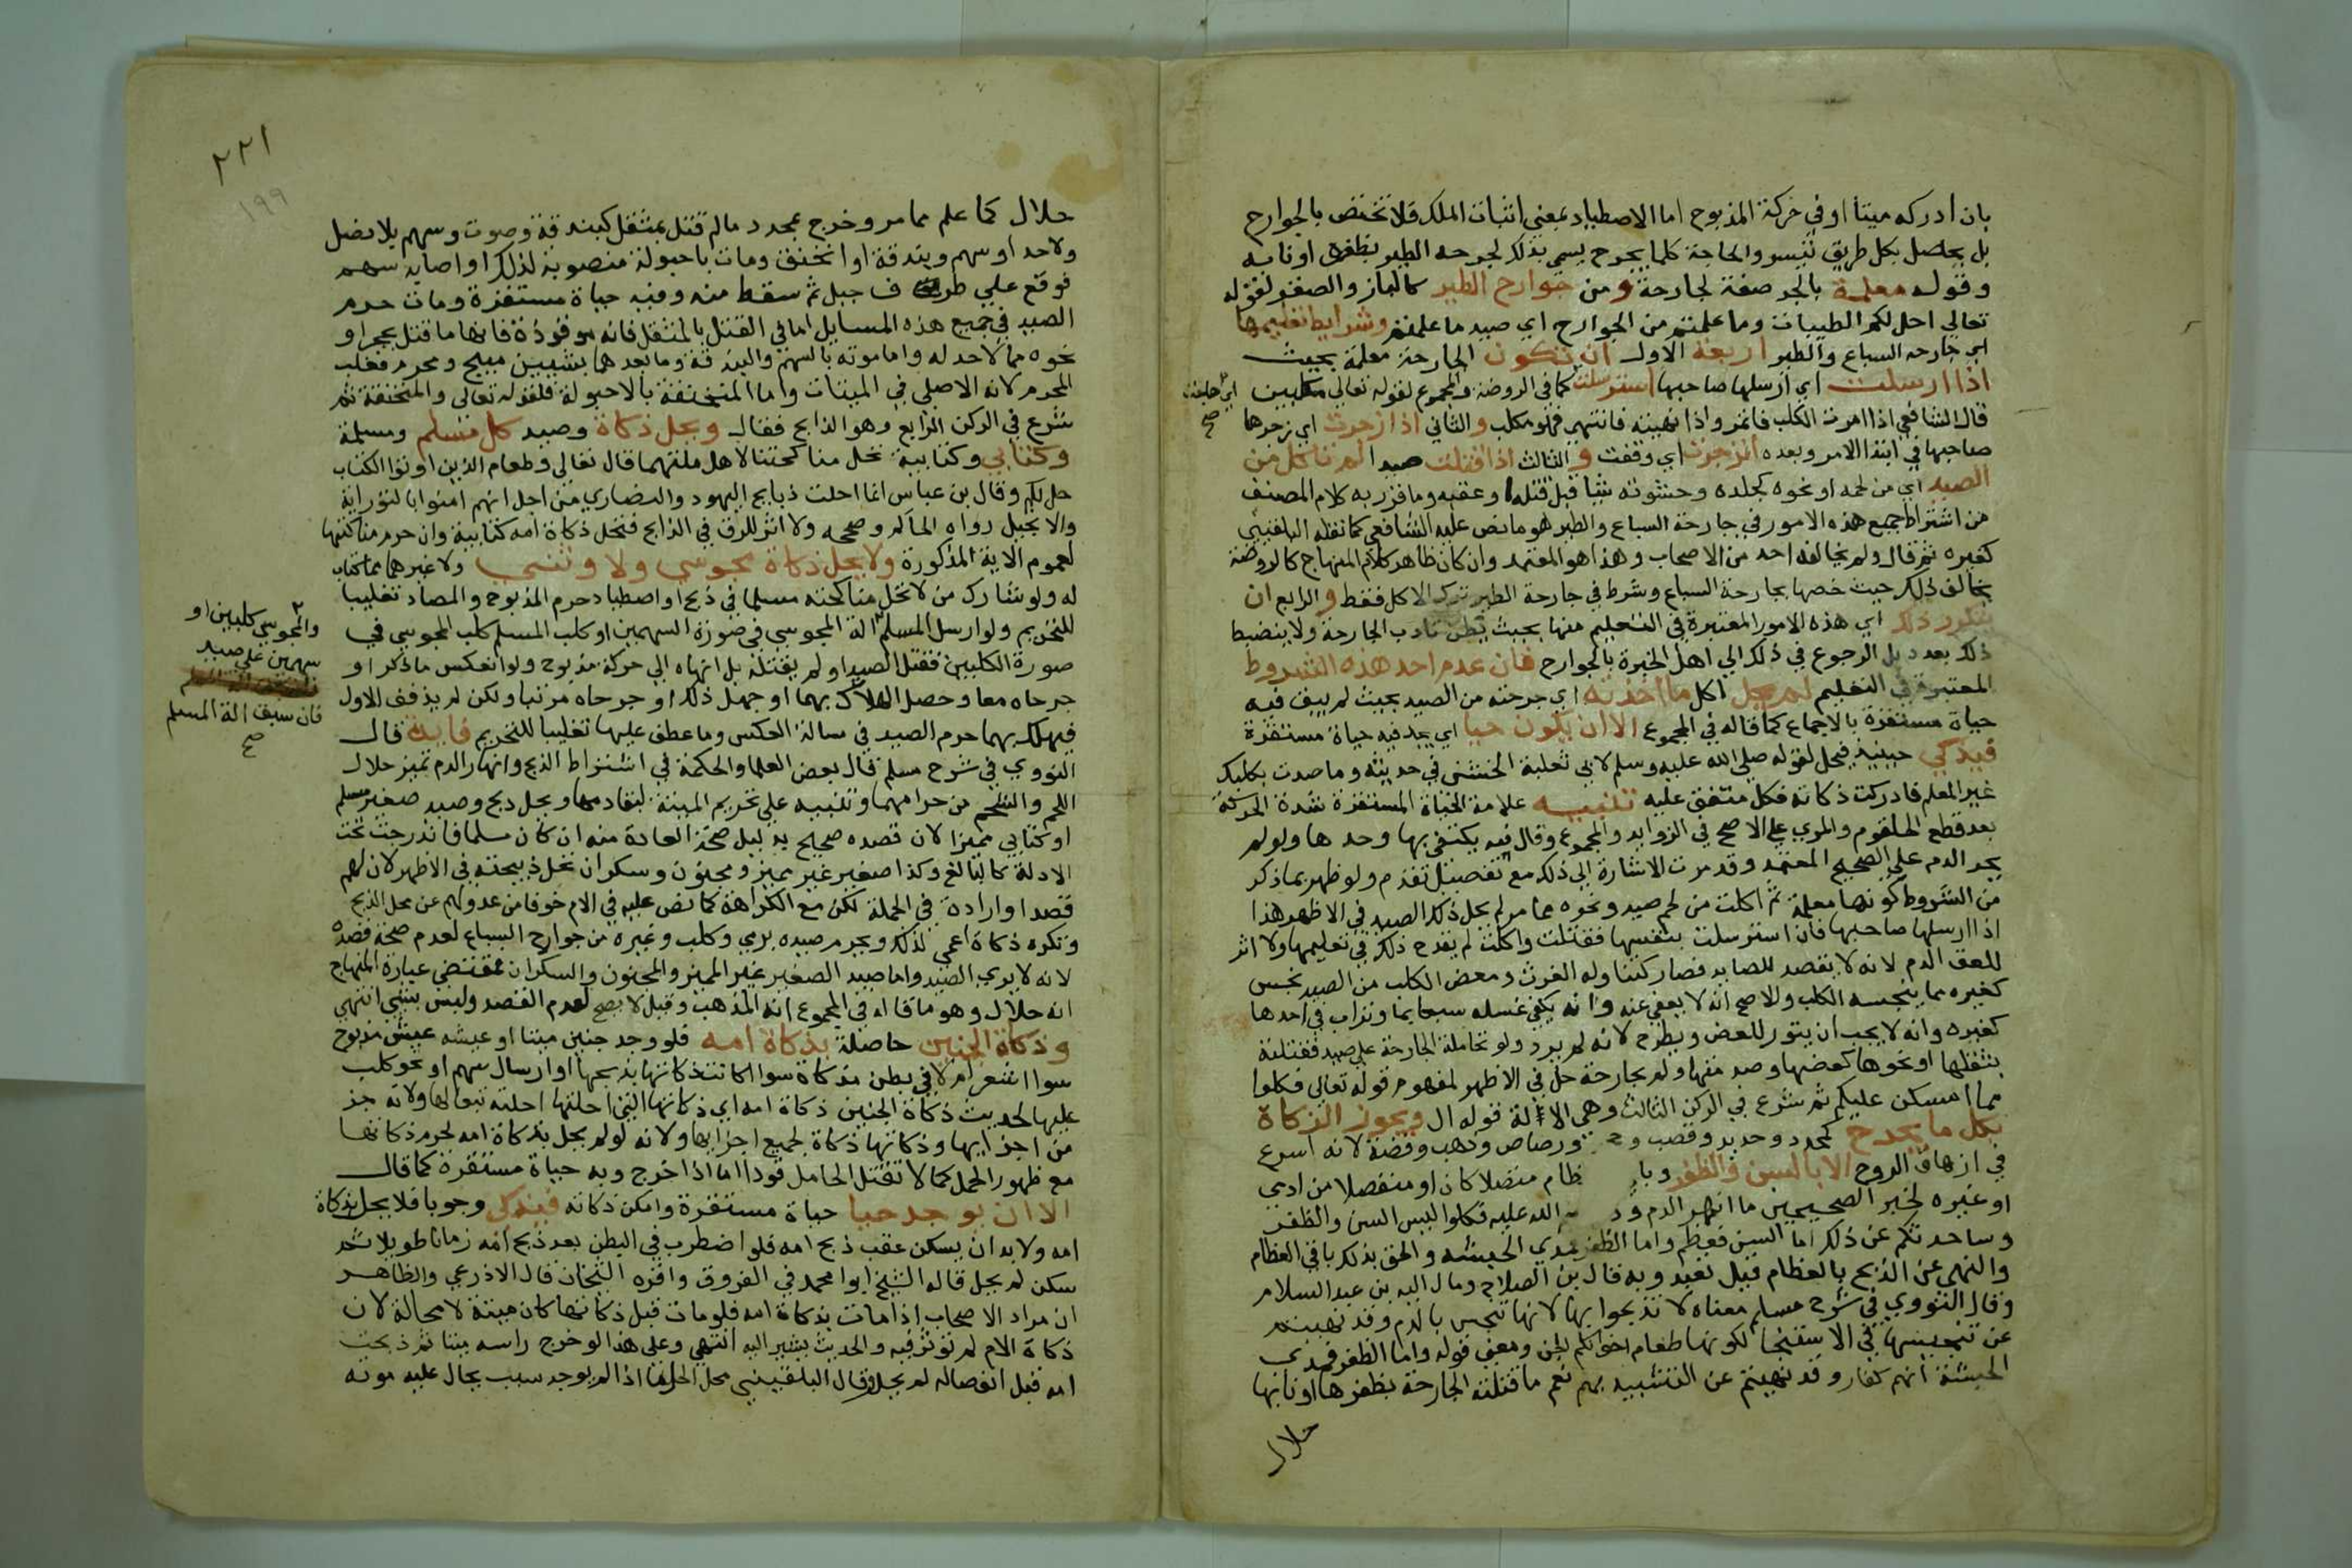 بان ادركه ميتا او في حركة المذبوح اما الاصطياد بمعني اثبات الملك فلا تختص بالجوارح
بل يحصل بكل طريق تيسر والحاجة كلما يجرح يسمي بذلك لجرحه الطير بظفره او نابه
وقوله معلمة بالجر صفة لجارحة ومن جوارح الطير كالباز والصقر لقوله
تعالي احل لكم الطيبات وما علمتم من الجوارح اي صيد ما علمتم وشرايط تعليمها
اي جارحه السباع والطير اربعة الاول ان تكون الجارحة معلمة بحيث
اذا ارسلت اي ارسلها صاحبها استرسلت كما في الروضة والمجموع لقوله تعالي مكلبين
قال الشافعي اذا امرت الكلب فائتمر واذا نهيته فانتهي فهو مكلب والثاني اذا زجرت اي زجرها
صاحبها في ابتدا الامر وبعده انزجرت اي وقفت والثالث اذا قتلت صيدا لم تاكل من
الصيد اي من لحمه او نحوه كجلده وحشوته شيا قبل قتله او عقبه وما قرر به كلام المصنف
من اشتراط جميع هذه الامور في جارحة السباع والطير هو ما نص عليه الشافعي كما نقله البلقيني
كغيره ثم قال ولم يخالفه احد من الاصحاب وهذا هو المعتمد وان كان ظاهر كلام المنهاج كالروضة
يخالف ذلك حيث خصها بجارحة السباع وشرط في جارحة الطير ترك الاكل فقط والرابع ان
يتكرر ذلك اي هذه الامور المعتبرة في التعليم منها بحيث يظن تادب الجارحة ولا ينضبط
ذلك بعدد بل الرجوع في ذلك الي اهل الخبرة بالجوارح فان عدم احد هذه الشروط
المعتبرة في التعليم لم يحل اكل ما اخذته اي جرحته من الصيد بحيث لم يبق فيه
حياة مستقرة بالاجماع كما قاله في المجموع الا ان يكون حيا اي يجد فيه حياة مستقرة
فيذكي حينيذ فيحل لقوله صلي الله عليه وسلم لابي ثعلبة الخشني في حديثه وما صدت بكلبك
غير المعلم فادركت ذكاته فكل متفق عليه تنبيه علامة الحياة المستقرة شدة الحركة
بعد قطع الحلقوم والمري علي الاصح في الزوايد والمجموع وقال فيه يكتفي بها وحدها ولو لم
يجر الدم علي الصحيح المعتمد وقد مرت الاشارة الي ذلك مع تفصيل تقدم ولو ظهر بما ذكر
من الشروط كونها معلمة ثم اكلت من لحم صيد ونحوه مما مر لم يحل ذلك الصيد في الاظهر هذا
اذا ارسلها صاحبها فان استرسلت بنفسها فقتلت واكلت لم يقدح ذلك في تعليمها ولا اثر
للعق الدم لانه لا يقصد للصايد فصار كتناوله الفرث ومعض الكلب من الصيد نجس
كغيره مما ينجسه الكلب والاصح انه لا يعفي عنه وانه يكفي غسله سبعا بما وتراب في احدها
كغيره وانه لا يجب ان يقور للعض ويطرح لانه لم يرد ولو تحاملت الجارحة علي صيد فقتلته
بثقلها او نحوها كعضها وصدمتها ولم يجارحة حل في الاظهر لمفهوم قوله تعالي فكلوا
مما امسكن عليكم ثم شرع في الركن الثالث وهي الالة قوله ال ويجوز الذكاة
بكل ما يجرح كمحدد وحديد وقصب و ورصاص وذهب وفضة لانه اسرع
في ازهاق الروح الا بالسن والظفر وبا ظام متصلا كان او منفصلا من ادمي
او غيره لخبر الصحيحين ما انهر الدم وذ م الله عليه فكلوا ليس السن والظفر
وساحدثكم عن ذلك اما السن فعظم واما الظفر فمدي الحبشه والحق بذلك باقي العظام
والنهي عن الذبح بالعظام قيل تعبد وبه قال بن الصلاح ومال اليه بن عبد السلام
وقال النووي في شرح مسلم معناه لا تذبحوا بها لانها تنجس بالدم وقد نهيتم
عن تنجيسها في الاستنجا لكونها طعام اخوانكم الجن ومعني قوله واما الظفر فمدي
الحبشة انهم كفار وقد نهيتم عن التشبيه بهم نعم ما قتلته الجارحة بظفرها او نابها
حلال
صح
٢٢١
١٩٩
حلال كما علم مما مر وخرج بمحدد ما لم قتل بمثقل كبندقة وصوت وسهم بلا نصل
ولا حد او سهم وبندقة او انخنق ومات باحبولة منصوبة لذلك او اصابه سهم
فوقع علي طرف جبل ثم سقط منه وفيه حياة مستقرة ومات حرم
الصيد في جميع هذه المسايل اما في القتل بالمثقل فانه موقوذة فانها ما قتل بحجر او
نحوه مما لا حد له واما موته بالسهم والبندقة وما بعدهما بشيين مبيح ومحرم فغلب
المحرم لانه الاصلي في الميتات واما المنخنقة بالاحبولة فلقوله تعالي والمنخنقة ثم
شرع في الركن الرابع وهو الذابح فقال ويحل ذكاة وصيد كل مسلم ومسلمة
وكتابي وكتابية تحل مناكحتنا لاهل ملتهما قال تعالي وطعام الذين اوتوا الكتاب
حل لكم وقال بن عباس انما احلت ذبايح اليهود والنصاري من اجل انهم امنوا بالتوراة
والانجيل رواه الحاكم وصححه ولا اثر للرق في الذابح فتحل ذكاة امه كتابية وان حرم مناكحتها
لعموم الاية المذكورة ولا يحل ذكاة مجوسي ولا وثني ولا غيرهما مما لا كتاب
له ولو شارك من لا تحل مناكحته مسلما في ذبح او اصطياد حرم المذبوح والمصاد تغليبا
للتحريم ولو ارسل المسلم الة المجوسي في صورة السهمين او كلب المسلم كلب المجوسي في
صورة الكلبين فقتل الصيد او لم يقتله بل انهاه الي حركة مذبوح ولو انعكس ما ذكر او
جرحاه معا وحصل الهلاك بهما او جهل ذلك او جرحاه مرتبا ولكن لم يذفف الاول
فيهلك بهما حرم الصيد في مسالة العكس وما عطف عليها تغليبا للتحريم فايدة قال
النووي في شرح مسلم قال بعض العلما والحكمة في اشتراط الذبح وانهار الدم تميز حلال
اللحم والشحم من حرامهما وتنبيه علي تحريم الميتة لبقا دمها ويحل ذبح وصيد صغير مسلم
او كتابي مميزا لان قصده صحيح بدليل صحة العبادة منه ان كان مسلما فاندرجت تحت
الادلة كالبالغ وكذا صغير غير مميز ومجنون وسكران تحل ذبيحته في الاظهر لان لهم
قصدا وارادة في الجملة لكن مع الكراهة كما نص عليه في الام خوفا من عدولهم عن محل الذبح
وتكره ذكاة اعمي لذلك ويحرم صيده برمي وكلب وغيره من جوارح السباع لعدم صحة قصده
لانه لا يري الصيد واما صيد الصغير غير المميز والمجنون والسكران فمقتضي عبارة المنهاج
انه حلال وهو ما قاله في المجموع انه المذهب وقيل لا يصح لعدم القصد وليس بشي انتهي
وذكاة الجنين حاصلة بذكاة امه فلو وجد جنين ميتا او عيشه عيش مذبوح
سوا اشعر ام لا في بطن مذكاة سوا اكانت ذكاتها بذبحها او ارسال سهم او نحو كلب
عليها لحديث ذكاة الجنين ذكاة امه اي ذكاتها التي احلتها احلته تبعا لها ولانه جز
من اجزايها وذكاتها ذكاة لجميع اجزايها ولانه لو لم يحل بذكاة امه لحرم ذكاتها
مع ظهور الحمل كما لا تقتل الحامل قودا اما اذا خرج وبه حياة مستقرة كما قال
الا ان يوجد حيا حياة مستقرة وامكن ذكاته فيذكي وجوبا فلا يحل بذكاة
امه ولا بد ان يسكن عقب ذبح امه فلو اضطرب في البطن بعد ذبح امه زمانا طويلا ثم
سكن لم يحل قاله الشيخ ابو محمد في الفروق واقره الشيخان قال الاذرعي والظاهر
ان مراد الاصحاب اذا مات بذكاة امه فلو مات قبل ذكاتها كان ميتة لا محالة لان
ذكاة الام لم تؤثر فيه والحديث يشير اليه انتهي وعلي هذا لو خرج راسه ميتا ثم ذبحت
امه قبل انفصاله لم يحل وقال البلقيني محل الحل ما اذا لم يوجد سبب يحال عليه موته
والمجوسي كلبين او
سهمين علي صيد
فان سبق الة المسلم
صح